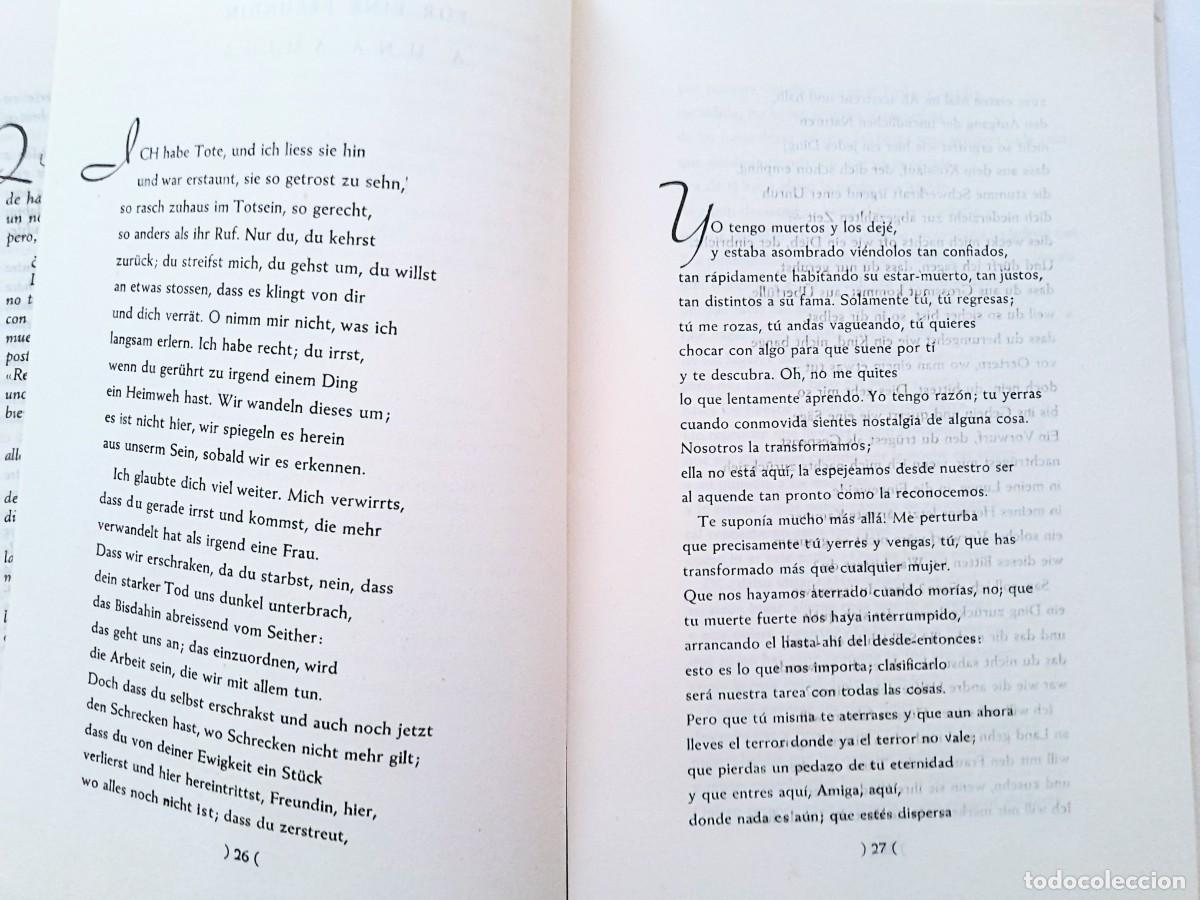 ICH habe Tote, und ich liess sie hin
und war erstaunt, sie so getrost zu sehn,
so rasch zuhaus im Totsein, so gerecht,
so anders als ihr Ruf. Nur du, du kehrst
zurück; du streifst mich, du gehst um, du willst
an etwas stossen, dass es klingt von dir
und dich verrät. O nimm mir nicht, was ich
langsam erlern. Ich habe recht; du irrst,
wenn du gerührt zu irgend einem Ding
ein Heimweh hast. Wir wandeln dieses um;
es ist nicht hier, wir spiegeln es herein
aus unserm Sein, sobald wir es erkennen.
Ich glaubte dich viel weiter. Mich verwirrts,
dass du gerade irrst und kommst, die mehr
verwandelt hat als irgend eine Frau.
Dass wir erschraken, da du starbst, nein, dass
dein starker Tod uns dunkel unterbrach,
das Bisdahin abreissend vom Seither:
das geht uns an; das einzuordnen, wird
die Arbeit sein, die wir mit allem tun.
Doch dass du selbst erschrakst und auch noch jetzt
den Schrecken hast, wo Schrecken nicht mehr gilt;
dass du von deiner Ewigkeit ein Stück
verlierst und hier hereintrittst, Freundin, hier,
wo alles noch nicht ist; dass du zerstreut,
) 26 (
YO tengo muertos y los dejé,
y estaba asombrado viéndolos tan confiados,
tan rápidamente habitando su estar-muerto, tan justos,
tan distintos a su fama. Sólamente tú, tú regresas;
tú me rozas, tú andas vagueando, tú quieres
chocar con algo para que suene por tí
y te descubra. Oh, no me quites
lo que lentamente aprendo. Yo tengo razón; tu yerras
cuando conmovida sientes nostalgia de alguna cosa.
Nosotros la transformamos;
ella no está aquí, la espejeamos desde nuestro ser
al aquende tan pronto como la reconocemos.
Te suponía mucho más allá! Me perturba
que precisamente tú yerres y vengas, tú, que has
transformado más que cualquier mujer.
Que nos hayamos aterrado cuando morías, no; que
tu muerte fuerte nos haya interrumpido,
arrancando el hasta-ahí del desde-entonces:
esto es lo que nos importa; clasificarlo
será nuestra tarea con todas las cosas.
Pero que tú misma te aterrases y que aun ahora
lleves el terror donde ya el terror no vale;
que pierdas un pedazo de tu eternidad
y que entres aquí, Amiga, aquí,
donde nada es aún; que estés dispersa
) 27 (
todocoleccion